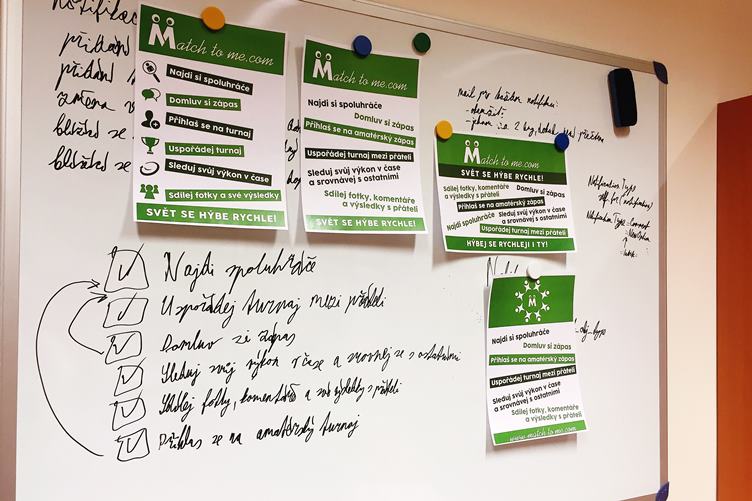 notifikac
přidání
přidání
změna
blížící se
blížící se
Match to me.com
Najdi si spoluhráče
Domluv si zápas
Přihlaš se na turnaj
Uspořádej turnaj
Sleduj svůj výkon v čase
Sdílej fotky a své výsledky
SVĚT SE HÝBE RYCHLE!
Match to me.com
Najdi si spoluhráče
Domluv si zápas
Přihlaš se na amatérský zápas
Uspořádej turnaj mezi přáteli
Sleduj svůj výkon v čase
a srovnávej s ostatními
Sdílej fotky, komentáře
a výsledky s přáteli
SVĚT SE HÝBE RYCHLE!
Match to me.com
SVĚT SE HÝBE RYCHLE!
Sdílej fotky, komentáře
a výsledky s přáteli
Domluv si zápas
Přihlaš se na amatérský zápas
Najdi spoluhráče
Sleduj svůj výkon v čase
a srovnávej s ostatními
Uspořádej turnaj mezi přáteli
HÝBEJ SE RYCHLEJI I TY!
M
Najdi si spoluhráče
Domluv si zápas
Přihlaš se na amatérský zápas
Uspořádej turnaj mezi přáteli
Sleduj svůj výkon v čase
a srovnávej s ostatními
Sdílej fotky, komentáře
a výsledky s přáteli
www.match to me.com
mail pro každou notifikaci:
Notification Type
Notification Type
Najdi spoluhráče
Uspořádej turnaj mezi přáteli
Domluv si zápas
Sleduj svůj výkon v čase a srovnej se s ostatními
Sdílej fotky, komentáře a své výsledky s přáteli
Přihlas se na amatérský turnaj